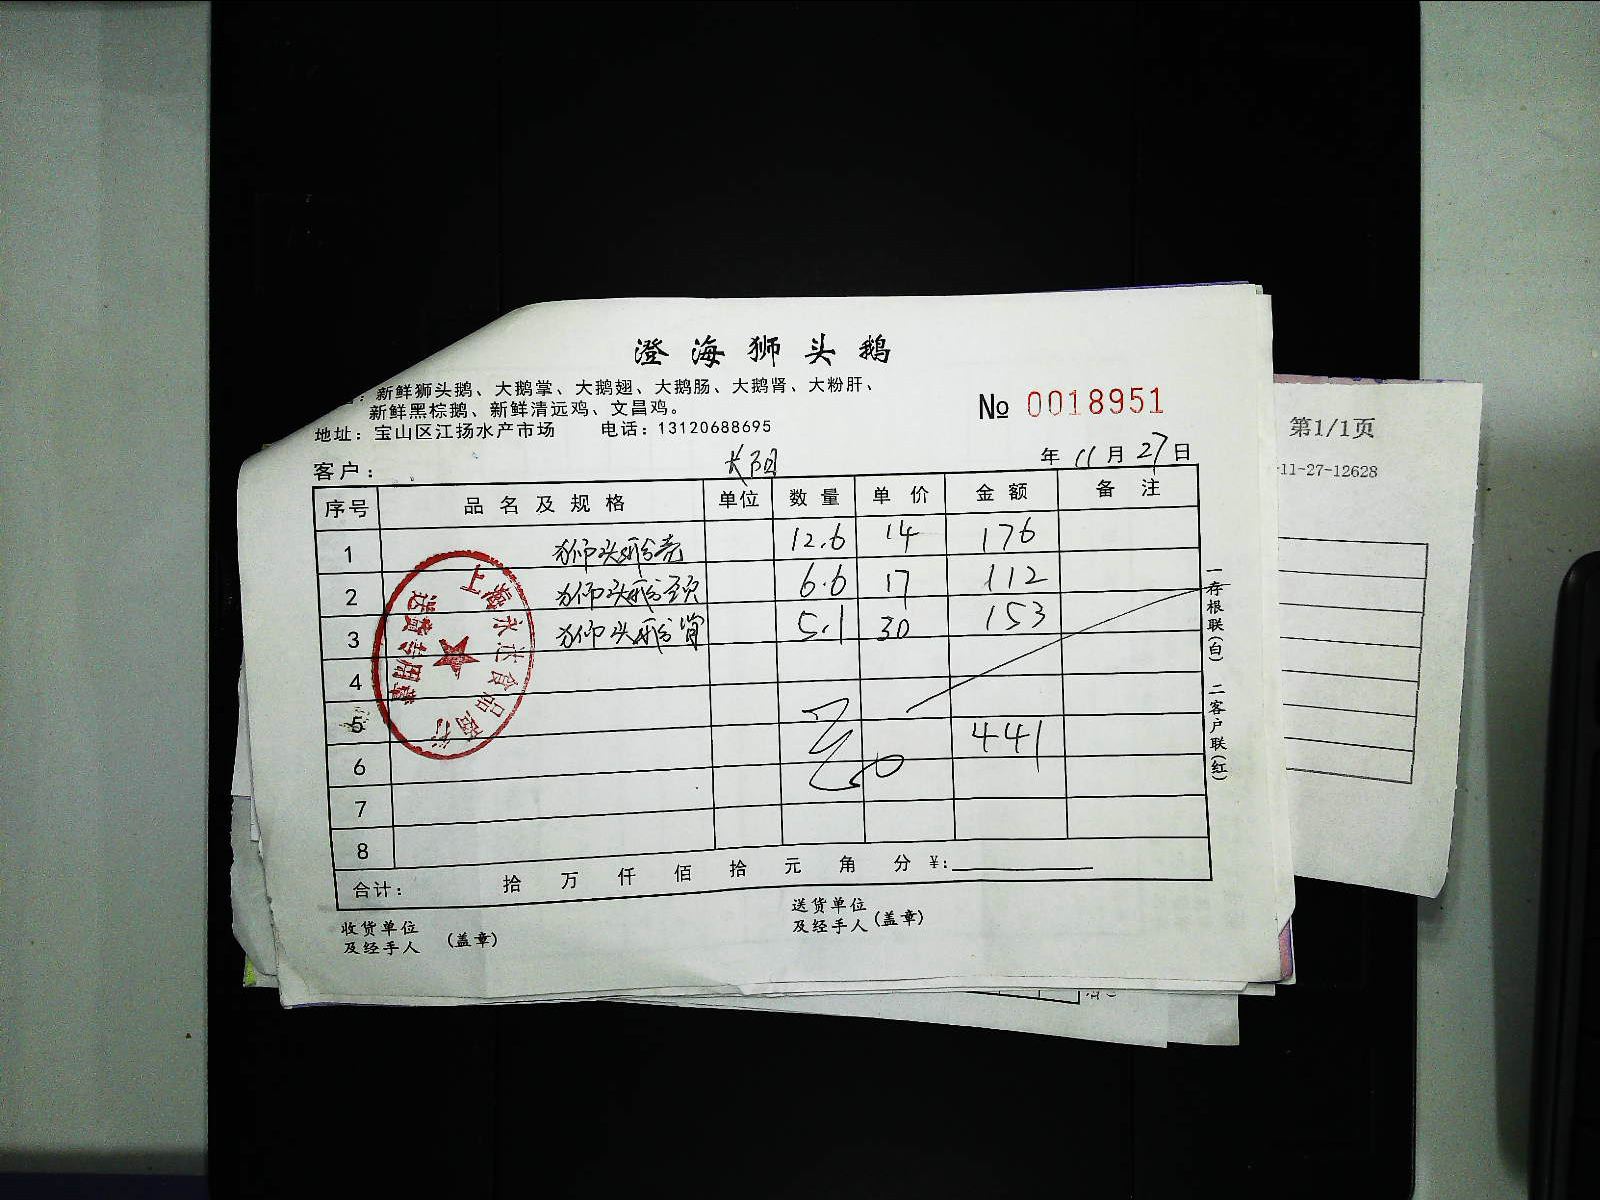 澄海狮头鹅
：新鲜狮头鹅、大鹅掌、大鹅翅、大鹅肠、大鹅肾、大粉肝、
新鲜黑棕鹅、新鲜清远鸡、文昌鸡。
№ 0018951
地址：宝山区江扬水产市场 电话：13120688695
客户： 年 11 月 27 日
序号 品名及规格 单位 数量 单价 金额 备注
1 狮头鹅壳 12.6 14 176
2 狮头鹅颈 6.6 17 112
3 狮头鹅肾 5.1 30 153
4
5 441
6
7
8
合计： 拾 万 仟 佰 拾 元 角 分 ¥:
收货单位
及经手人 (盖章)
送货单位
及经手人 (盖章)
一存根联(白) 二客户联(红)
上海永达食品商行
送货专用章
第1/1页
-11-27-12628